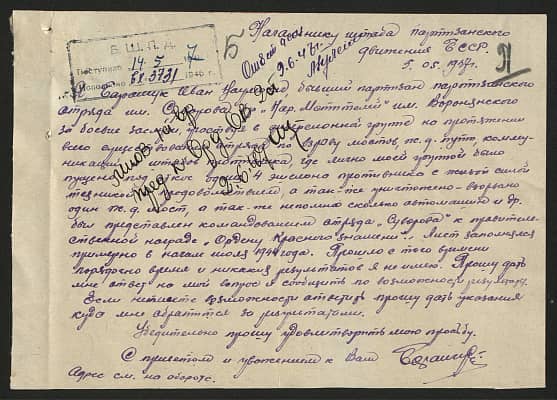 Начальнику штаба партизанского
движения БССР.
5.05.1947г.
Б. Ш. П. Д.
Поступило 14. 5 7
Исполнено 1946 г.
5731
5
9.6.47г.
Я Баращук Иван бывший партизан партизанского
отряда им. Суворова им. Воронянского
За боевые заслуги, в диверсионной группе на протяжении
всего отряда по взрыву мостов, ж.д. пути, комму-
никаций противника, где лично моей группой было
пущено под откос 4 эшелона противника с живой силой
техникой продовольствием, а так-же уничтожено-взорвано
один ж.д. мост, а так-же непомню сколько автомашин и др.
был представлен командованием отряда "Суворова" к правите-
льственной награде "Ордену Красного знамени". Лист заполнялся
примерно в начале июля 1944 года. Прошло с того времени
порядочно время и никаких результатов я не имею. Прошу дать
мне ответ на мой вопрос и сообщить по возможности результату.
Если неимеете возможности ответить прошу дать указания
куда мне обратится за результатом.
Убедительно прошу удовлетворить мою просьбу.
С приветом и уважением к Вам Баращук
Адрес см. на обороте.